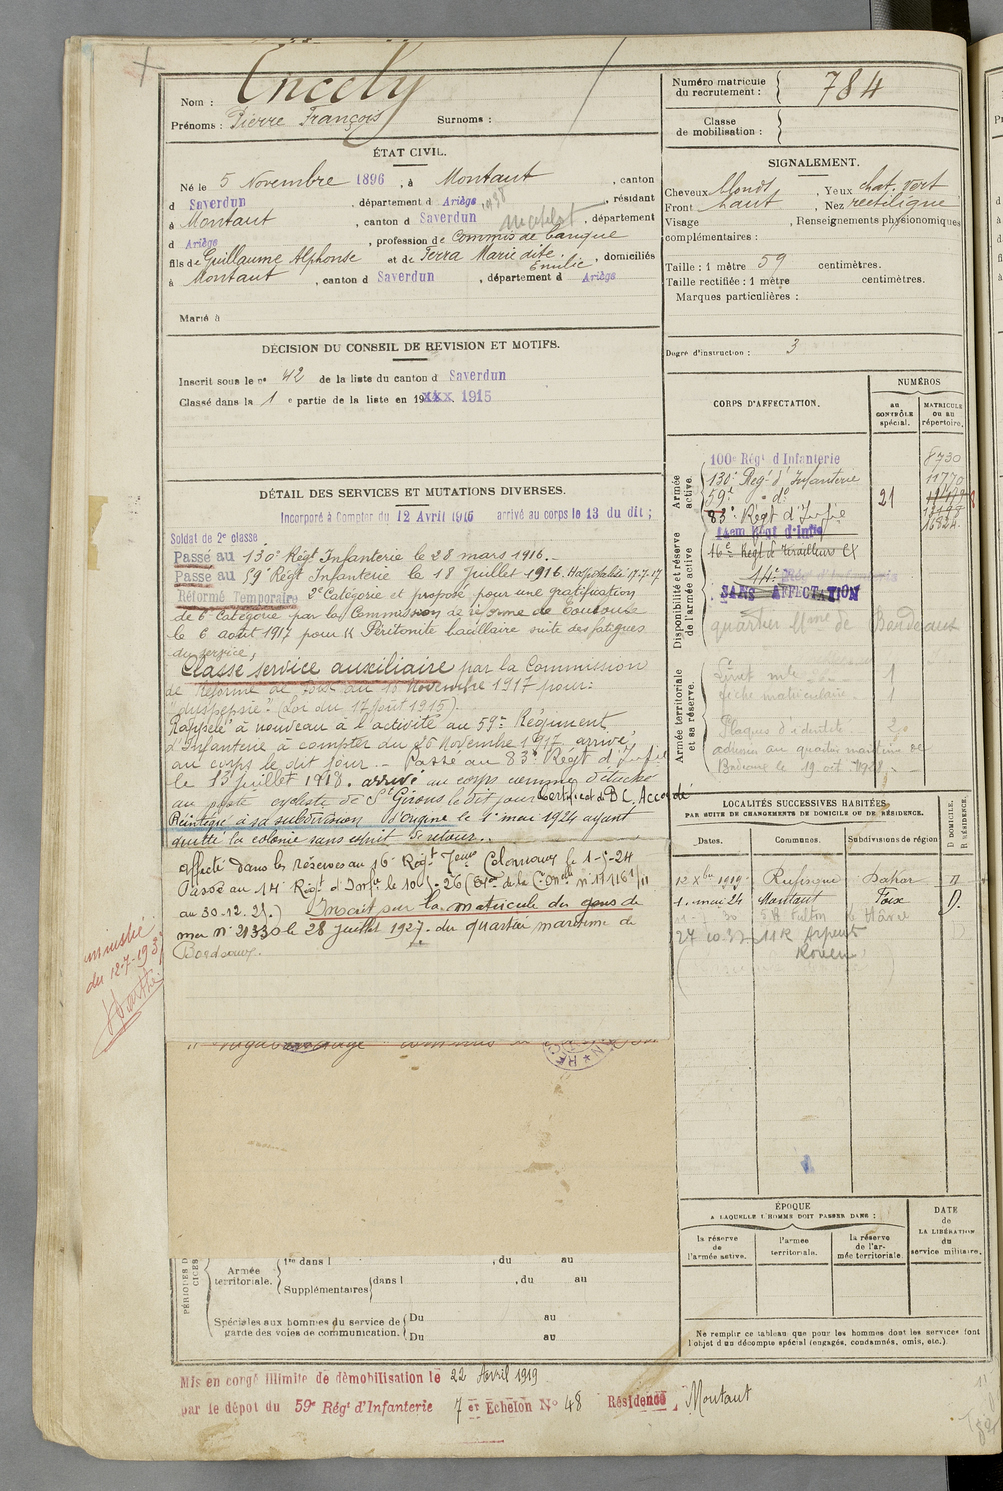 Nom : Encely
Prénoms : Pierre François Surnoms :
Numéro matricule du recrutement : 784
Classe de mobilisation :
ÉTAT CIVIL.
Né le 5 Novembre 1896, à Montaut, canton
d Saverdun, département d Ariège, résidant
à Montaut, canton d Saverdun, département
d Ariège, profession de Commis de banque
matelot 1938
fils de Guillaume Alphonse et de Terra Marie dite Emilie, domiciliés
à Montaut, canton d Saverdun, département d Ariège
Marié à
SIGNALEMENT.
Cheveux blonds, Yeux chat. vert
Front haut, Nez rectiligne
Visage , Renseignements physionomiques
complémentaires :
Taille : 1 mètre 59 centimètres.
Taille rectifiée : 1 mètre centimètres.
Marques particulières :
Degré d'instruction : 3
DÉCISION DU CONSEIL DE REVISION ET MOTIFS.
Inscrit sous le n° 42 de la liste du canton d Saverdun
Classé dans la 1 e partie de la liste en 19xxx 1915
DÉTAIL DES SERVICES ET MUTATIONS DIVERSES.
Incorporé à Compter du 12 Avril 1916 arrivé au corps le 13 du dit ;
Soldat de 2e classe
Passé au 130e Régt Infanterie le 28 mars 1916.
Passé au 59e Régt Infanterie le 18 Juillet 1916. Hospitalisé 17-7-17
Réformé Temporaire 2e Catégorie et proposé pour une gratification
de 6e Catégorie par la Commission de réforme de Toulouse
le 6 août 1917 pour "Péritonite bacillaire suite des fatigues
du service,
Classé service auxiliaire par la Commission
de Réforme de Foix du 16 Novembre 1917 pour:
"dyspepsie" (Loi du 17 Août 1915).
Rappelé à nouveau à l'activité au 59e Régiment
d'Infanterie à compter du 26 Novembre 1917, arrivé
au corps le dit jour. - Passé au 83e Régt d'Infie
le 13 Juillet 1918. arrivé au corps comme détaché
au poste cycliste de St Girons le dit jour Certificat d BC. Accordé
Réintégré à sa subdivision d'origine le 1er mai 1924 ayant
quitté la colonie sans esprit de retour.
Affecté dans les réserves au 16e Régt Tirrs Coloniaux le 1-5-24
Passé au 14e Régt d'Infie le 10-5-26
au 30-12-25.) Inscrit sur la matricule des gens de
mer n° 21330 le 28 Juillet 1927. du quartier maritime de
Bordeaux.
amnistié
du 12-7-193
CORPS D'AFFECTATION.
NUMÉROS
AU CONTRÔLE spécial.
MATRICULE ou au répertoire.
Armée active.
100e Régt d'Infanterie 8730
130e Régt d'Infanterie 11770
59e " do 21
83e Régt d'Infie
Disponibilité et réserve de l'armée active.
14em Régt d'Infie
16e Régt de Tirailleurs Cx
14e Rég d'Infanterie
SANS AFFECTATION
quartier Mme de Bordeaux
Armée territoriale et sa réserve.
Livret mle 1
fiche matriculaire. 1
Plaques d'identité.
adressés au quartier maritime de
Bordeaux le 19 oct 1928
LOCALITÉS SUCCESSIVES HABITÉES
PAR SUITE DE CHANGEMENTS DE DOMICILE OU DE RÉSIDENCE.
Dates. Communes. Subdivisions de région D. DOMICILE. R. RÉSIDENCE.
12 Xbre 1919 Rufisque Dakar D
1. mai 24 Montaut Foix D.
Fulton le Hâvre
27 10-37 11 R Arpent
Rouen
ÉPOQUE
A LAQUELLE L'HOMME DOIT PASSER DANS :
la réserve de l'armée active.
l'armée territoriale.
la réserve de l'armée territoriale.
DATE de LA LIBÉRATION du service militaire.
Armée territoriale. 1re dans l , du au
Supplémentaires dans l , du au
Spéciales aux hommes du service de garde des voies de communication. Du au
Du au
Ne remplir ce tableau que pour les hommes dont les services font
l'objet d'un décompte spécial (engagés, condamnés, omis, etc.).
Mis en congé illimité de démobilisation le 22 Avril 1919
par le dépôt du 59e Régt d'Infanterie 7er Echelon No 48 Résidence, Montaut